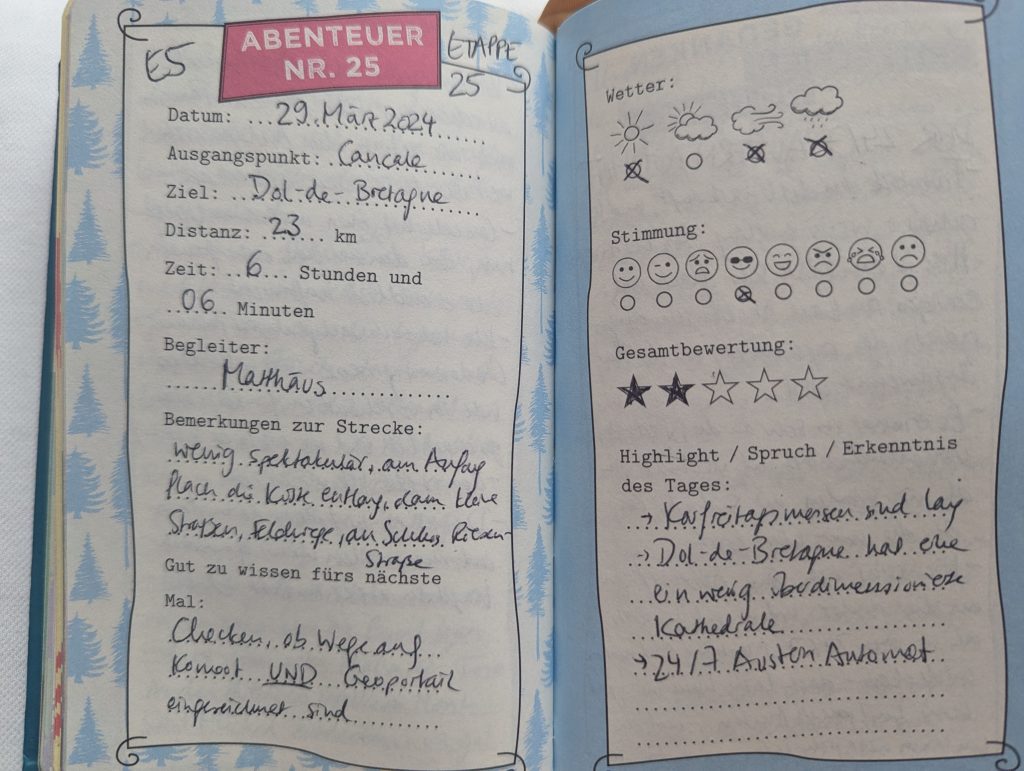 E5
ABENTEUER
NR. 25
ETAPPE
25
Datum: 29. März 2024
Ausgangspunkt: Cancale
Ziel: Dol-de-Bretagne
Distanz: 23 km
Zeit: 6 Stunden und
06 Minuten
Begleiter:
Matthäus
Bemerkungen zur Strecke:
wenig spektakulär, am Anfang
flach die Küste entlang, dann kleine
Straßen, Feldwege, am Schluss Riesen-
straße
Gut zu wissen fürs nächste
Mal:
Checken, ob Wege auf
Komoot UND Geoportail
eingezeichnet sind
Wetter:
Stimmung:
Gesamtbewertung:
Highlight / Spruch / Erkenntnis
des Tages:
→ Karfreitagsmessen sind lang
→ Dol-de-Bretagne hat eine
ein wenig überdimensionierte
Kathedrale
→ 24/7 Austern Automat